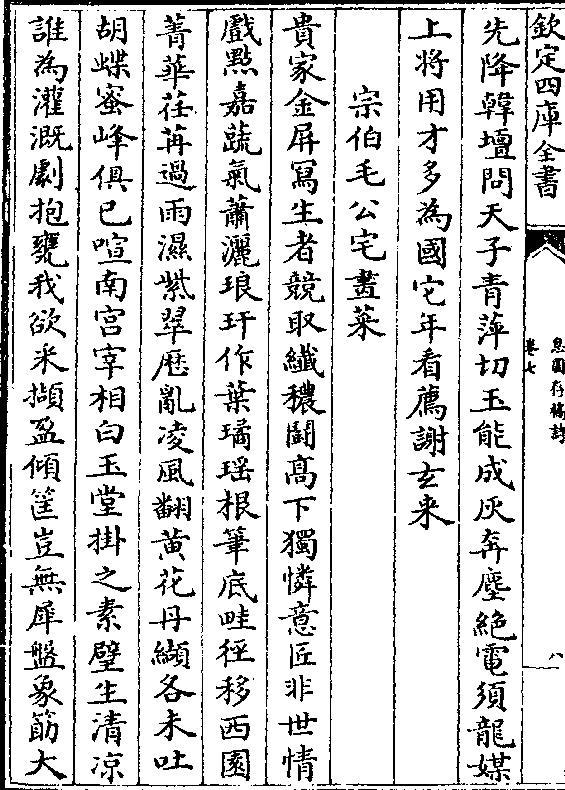 欽定四庫全書
息園存稿詩
卷七
八
先降韓壇問天子青萍切玉能成灰奔塵絶電須龍媒
上將用才多為國它年看薦謝玄来
宗伯毛公宅畫菜
貴家金屏寫生者競取纎穠鬪高下獨憐意匠非世情
戲㸃嘉蔬氣蕭灑琅玕作葉璚瑶根筆底畦徑移西園
菁華荏苒過雨濕紫翠歴亂凌風翻黄花丹纈各未吐
胡蝶蜜峰俱已喧南宫宰相白玉堂掛之素壁生清凉
誰為灌溉劇抱甕我欲采擷盈傾筐豈無犀盤象筯大